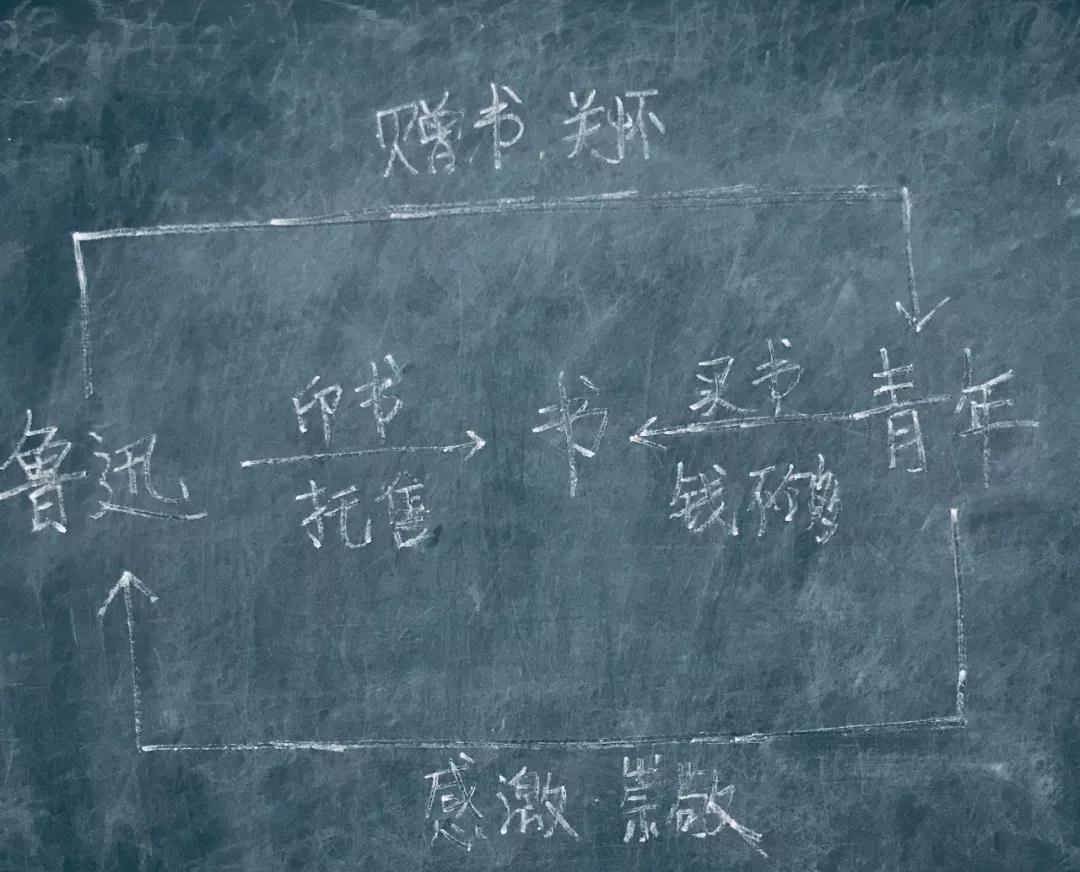 赠书、关怀
印书
买书
鲁迅
书
青年
托售
钱不够
感激 崇敬